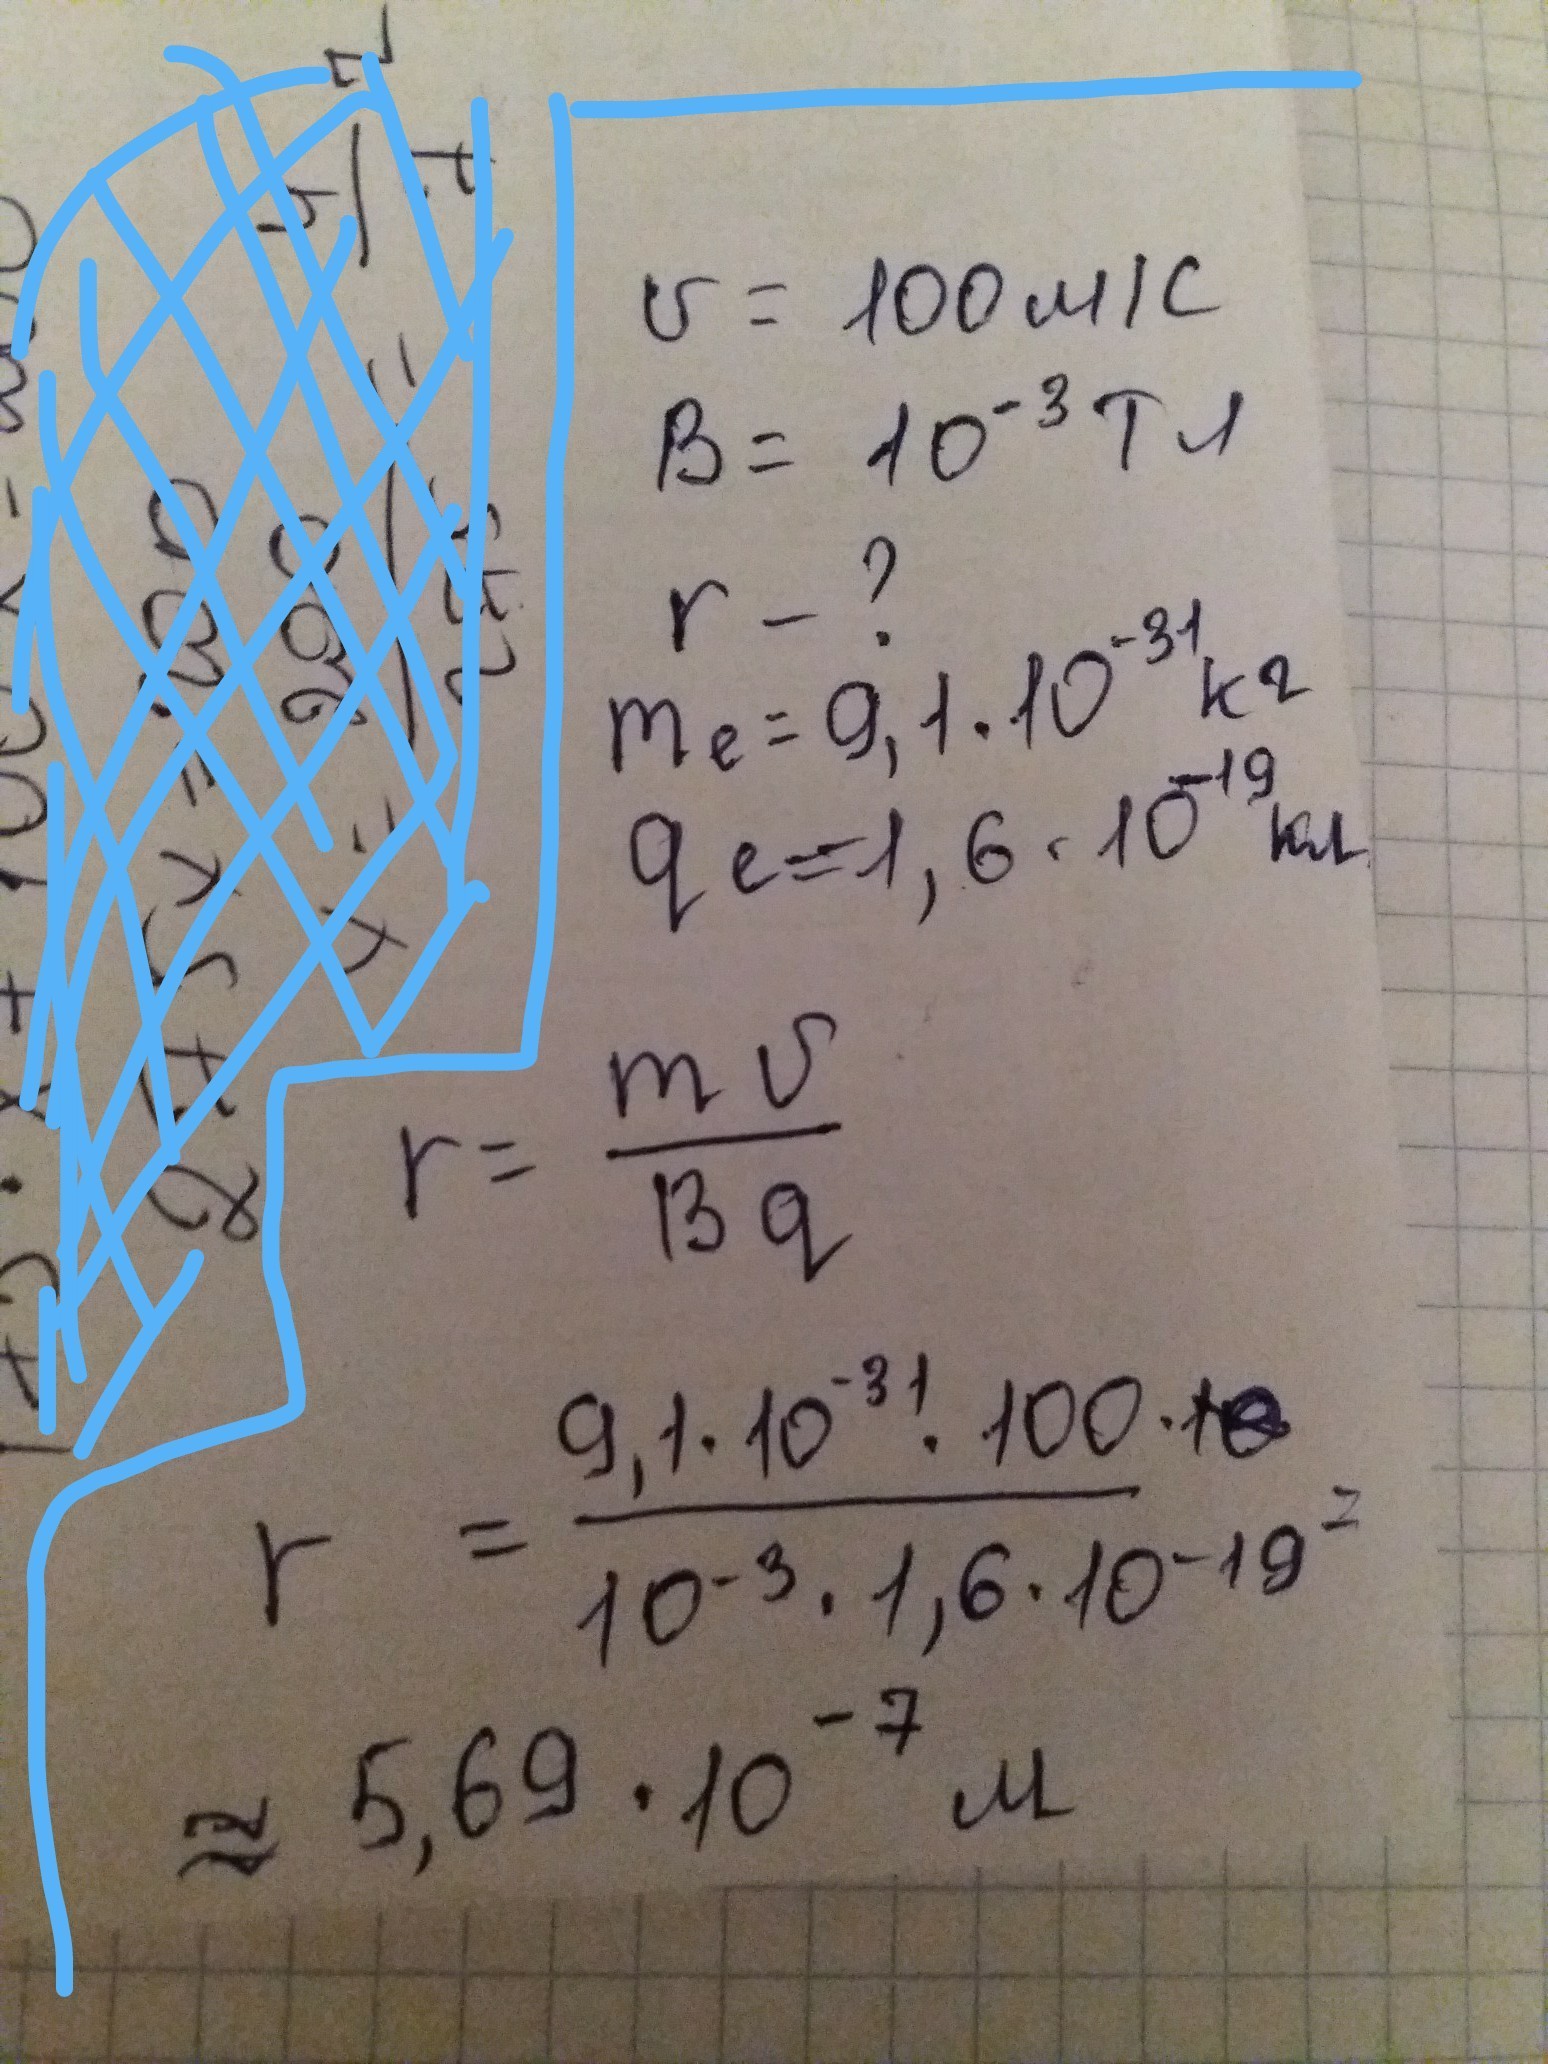 υ = 100 м/с
B = 10⁻³ Тл
r – ?
mₑ = 9,1 · 10⁻³¹ кг
qₑ = 1,6 · 10⁻¹⁹ кл
r = mυ / Bq
r = 9,1 · 10⁻³¹ · 100 / 10⁻³ · 1,6 · 10⁻¹⁹ =
≈ 5,69 · 10⁻⁷ м